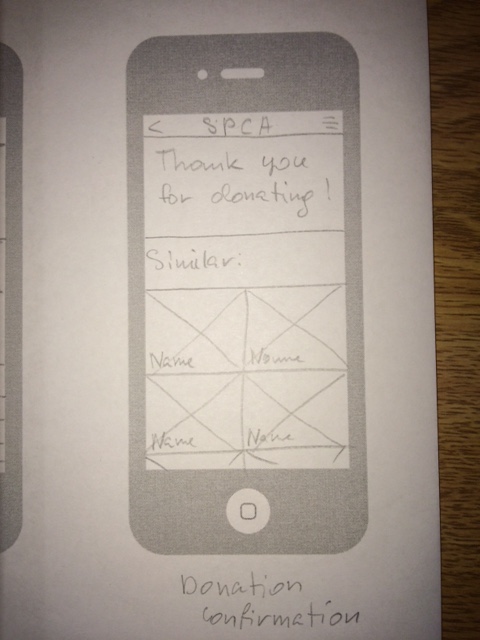 < SPCA
Thank you
for donating!
Similar:
Name Name
Name Name
Donation
confirmation